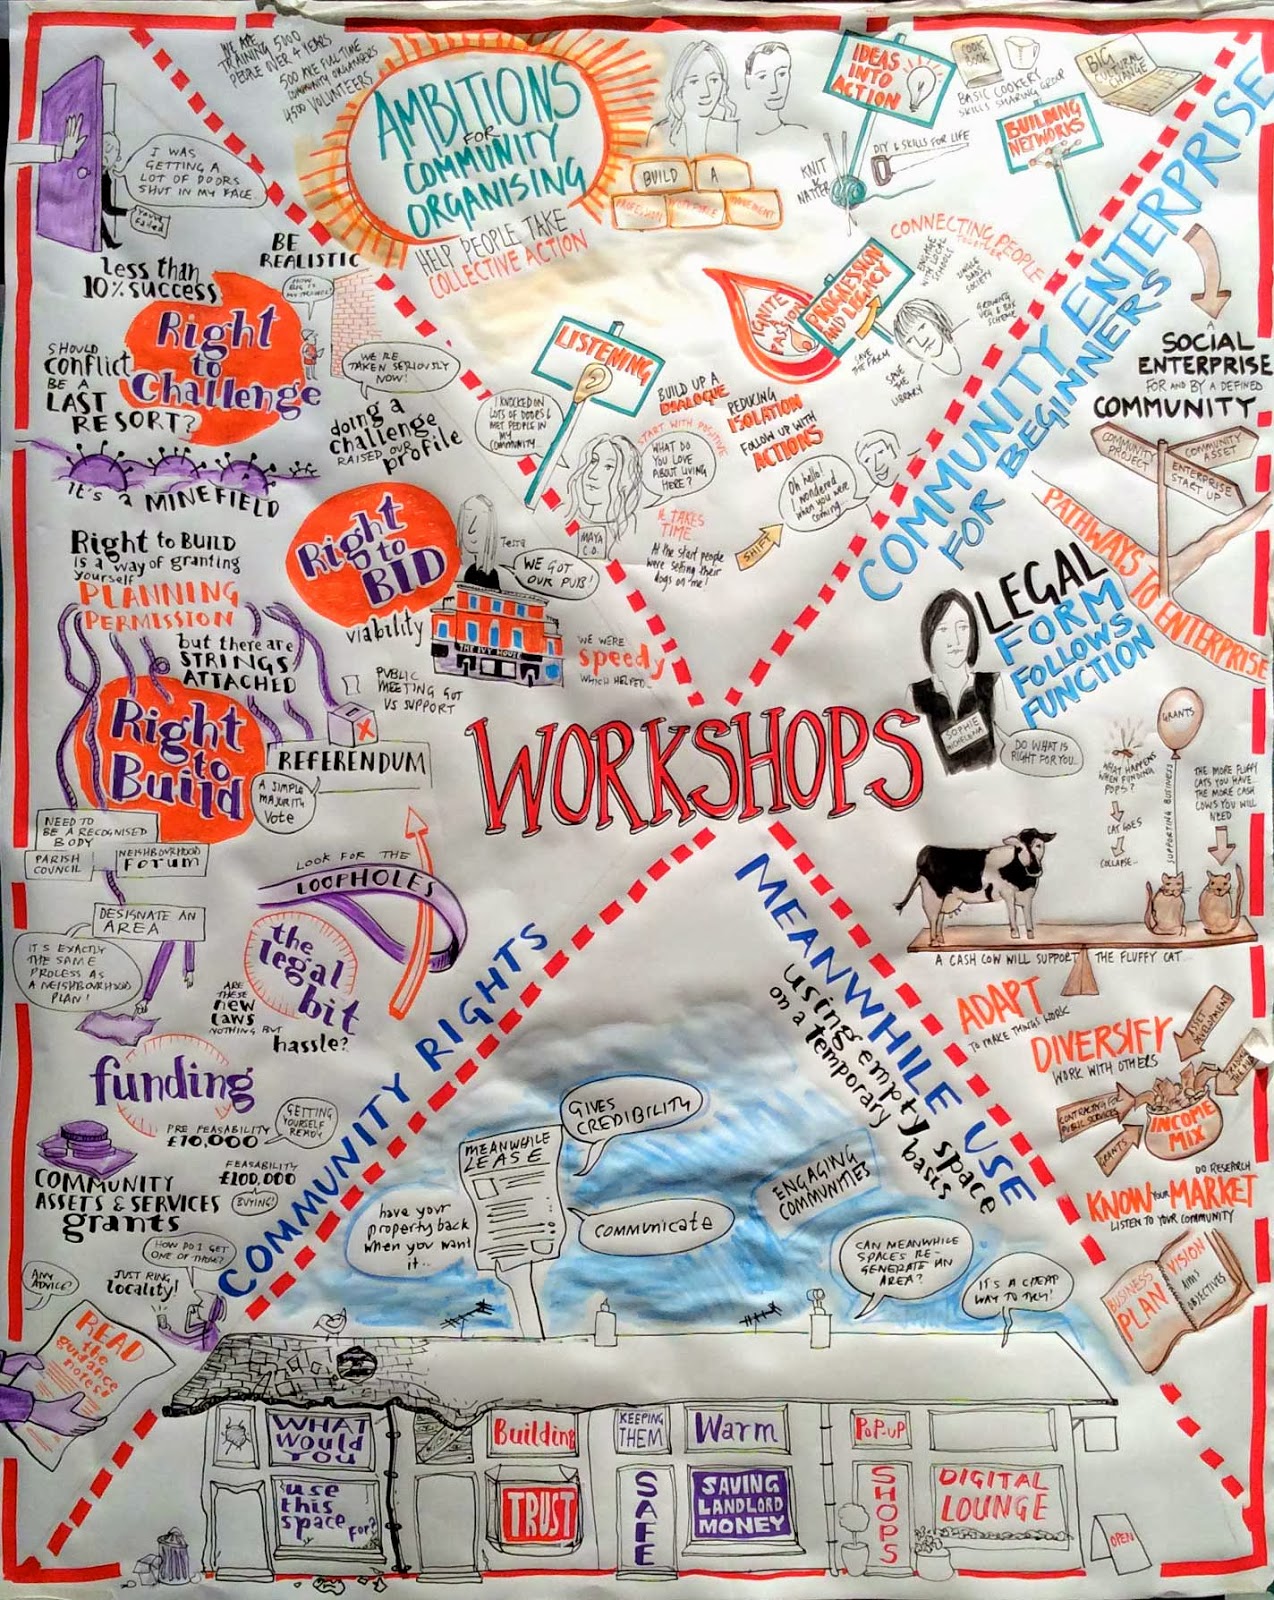 WE ARE
TRAINING 5000
PEOPLE OVER 4 YEARS
500 ARE FULL TIME
COMMUNITY ORGANISERS
4500 VOLUNTEERS
AMBITIONS
FOR
COMMUNITY
ORGANISING
HELP PEOPLE TAKE
COLLECTIVE ACTION
BUILD A
MOVEMENT
IDEAS
INTO
ACTION
COOK
BOOK
BASIC COOKERY
SKILLS SHARING GROUP
BIG
CULTURAL
CHANGE
BUILDING
NETWORKS
DIY & SKILLS FOR LIFE
KNIT
&
NATTER
CONNECTING PEOPLE
TOGETHER
ENGAGE
WITH LOCAL
SCHOOLS
SINGLE
DADS
SOCIETY
GROWING
VEG & BOX
SCHEME
PROGRESSION
AND LEGACY
IGNITE
PASSION
SAVE
THE FARM
SAVE
THE
LIBRARY
LISTENING
I KNOCKED ON
LOTS OF DOORS &
MET PEOPLE IN
MY
COMMUNITY...
BUILD UP A
DIALOGUE
START WITH POSITIVE
WHAT DO
YOU LOVE
ABOUT LIVING
HERE?
REDUCING
ISOLATION
FOLLOW UP WITH
ACTIONS
Oh hello!
I wondered
when you were
coming..
SHIFT
MAYA
C.O.
IT TAKES
TIME
At the start people
were setting their
dogs on me!
I WAS
GETTING A
LOT OF DOORS
SHUT IN MY FACE.
You've
Failed
BE
REALISTIC
less than
10% success
Right
to
Challenge
SHOULD
conflict
BE A
LAST
RESORT?
WE'RE
TAKEN SERIOUSLY
NOW!
doing a
challenge
RAISED OUR
profile
It's a MINEFIELD
Right to BUILD
is a way of granting
yourself
PLANNING
PERMISSION
but there are
STRINGS
ATTACHED
Right
to
BID
viability
Tessa
WE GOT
OUR PUB!
THE IVY HOUSE
WE WERE
speedy
WHICH HELPED..
PUBLIC
MEETING GOT
US SUPPORT
Right
to
Build
REFERENDUM
A SIMPLE
MAJORITY
Vote
NEED TO
BE A RECOGNISED
BODY
PARISH
COUNCIL
NEIGHBOURHOOD
FORUM
DESIGNATE AN
AREA
IT'S EXACTLY
THE SAME
PROCESS AS
A NEIGHBOURHOOD
PLAN!
LOOK FOR THE
LOOPHOLES
the
legal
bit
ARE
THESE
new
LAWS
NOTHING BUT
hassle?
funding
PRE FEASABILITY
£10,000
GETTING
YOURSELF
READY
FEASABILITY
£100,000
BUYING!
COMMUNITY
ASSETS & SERVICES
grants
HOW DO I GET
ONE OF THOSE?
ANY
ADVICE?
JUST RING
locality!
READ
the
guidance
notes!
COMMUNITY RIGHTS
WORKSHOPS
COMMUNITY ENTERPRISE
FOR BEGINNERS
A
SOCIAL
ENTERPRISE
FOR AND BY A DEFINED
COMMUNITY
COMMUNITY
PROJECT
COMMUNITY
ASSET
ENTERPRISE
START UP
PATHWAYS TO ENTERPRISE
LEGAL
FORM
FOLLOWS
FUNCTION
SOPHIE
DO WHAT IS
RIGHT FOR YOU..
GRANTS
WHAT HAPPENS
WHEN FUNDING
POPS?
CAT GOES
COLLAPSE..
SUPPORTING BUSINESS
THE MORE FLUFFY
CATS YOU HAVE..
THE MORE CASH
COWS YOU WILL
NEED
A CASH COW WILL SUPPORT THE FLUFFY CAT...
ADAPT
TO MAKE THINGS WORK
DIVERSIFY
WORK WITH OTHERS
ASSET
DEVELOPMENT
CONTRACTING FOR
PUBLIC SERVICES
GRANTS
INCOME
MIX
DO RESEARCH
KNOW YOUR MARKET
LISTEN TO YOUR COMMUNITY
BUSINESS
PLAN
VISION
AIMS
OBJECTIVES
MEANWHILE USE
using empty space
on a temporary
basis
MEANWHILE
LEASE
GIVES
CREDIBILITY
COMMUNICATE
have your
property back
when you want
it...
ENGAGING
COMMUNITIES
CAN MEANWHILE
SPACES RE-
GENERATE AN
AREA?
IT'S A CHEAP
WAY TO TRY!
WHAT
WOULD
YOU
use
this
space
for?
Building
TRUST
KEEPING
THEM
SAFE
Warm
SAVING
LANDLORD
MONEY
POP-UP
SHOPS
DIGITAL
LOUNGE
OPEN